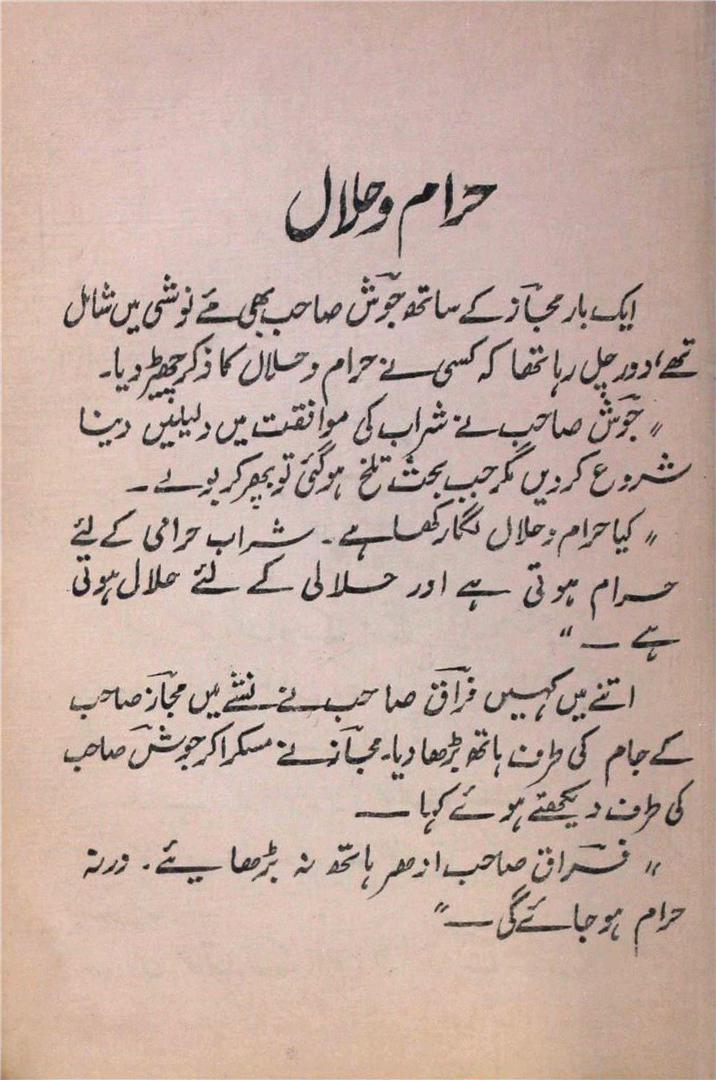 حرام و حلال
ایک بار مجازؔ کے ساتھ جوشؔ صاحب بھی مئے نوشی میں شامل
تھے، دور چل رہا تھا کہ کسی نے حرام و حلال کا ذکر چھیڑ دیا۔
" جوشؔ صاحب نے شراب کی موافقت میں دلیلیں دینا
شروع کر دیں مگر جب بحث تلخ ہو گئی تو بپھر کر بولے۔
" کیا حرام و حلال لگا رکھا ہے۔ شراب حرامی کے لئے
حرام ہوتی ہے اور حلالی کے لئے حلال ہوتی
ہے — "
اتنے میں کہیں فراقؔ صاحب نے نشے میں مجازؔ صاحب
کے جام کی طرف ہاتھ بڑھا دیا۔ مجازؔ نے مسکرا کر جوشؔ صاحب
کی طرف دیکھتے ہوئے کہا —
" فراقؔ صاحب ادھر ہاتھ نہ بڑھایئے۔ ورنہ
حرام ہو جائے گی — "